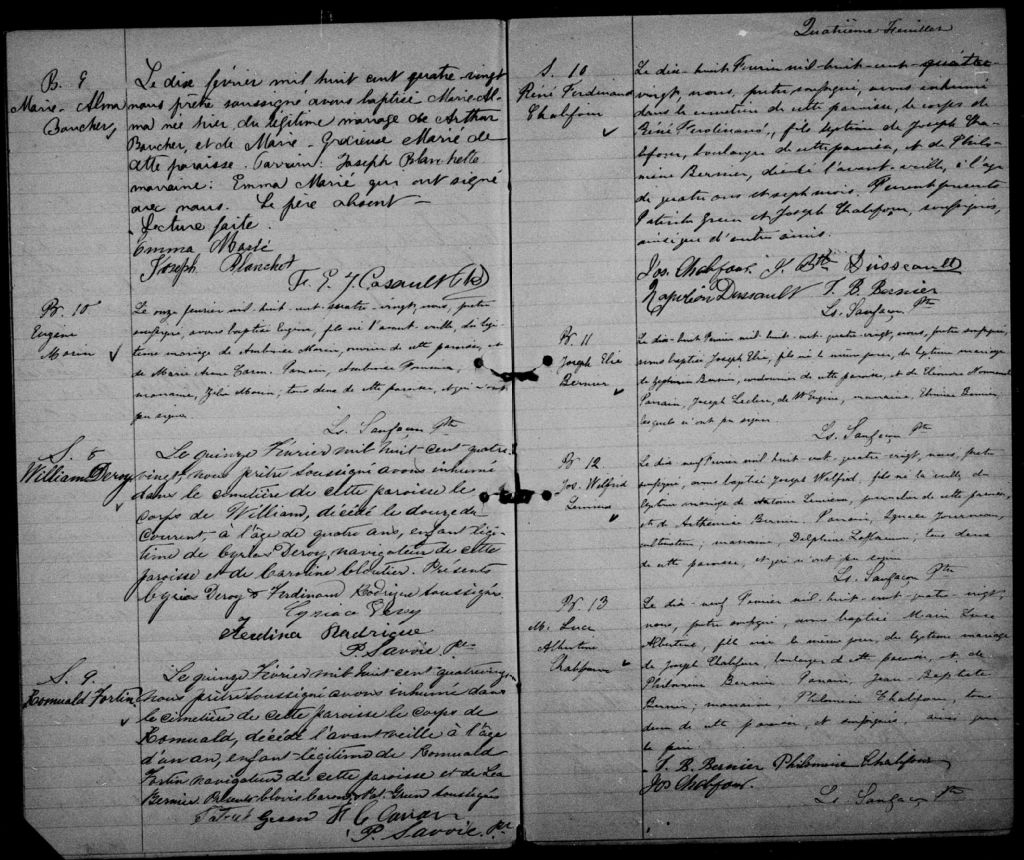 B. 9
Marie-Alma
Boucher
Le dix février mil huit cent quatre-vingt
nous prêtre soussigné avons baptisé Marie-Al-
ma née hier, du légitime mariage de Arthur
Boucher, et de Marie-Gracieuse Marié de
cette paroisse. Parrain: Joseph Blanchette
marraine: Emma Marié qui ont signé
avec nous. Le père absent —
Lecture faite.
Emma Marié
Joseph Blanchet
Fr. E. Y. Casault
B. 10
Eugène
Morin
Le onze février mil huit cent quatre-vingt, nous, prêtre
soussigné, avons baptisé Eugène, fils né l'avant veille, du légi-
time mariage de Ambroise Morin, de cette paroisse, et
de Marie Anne Caron. Parrain, Ambroise Fournier,
marraine, Zélie Morin, tous deux de cette paroisse, et qui n'ont
pu signer.
Ls. Sanfaçon Ptre
S. 8
William Deroy
Le quinze Février mil huit cent quatre
vingt, nous prêtre soussigné avons inhumé
dans le cimetière de cette paroisse le
corps de William, décédé le douze du
Courent, à l'âge de quatre ans, enfant légi-
time de Cyriac Deroy, navigateur de cette
paroisse et de Caroline Cloutier. Présents
Cyriac Deroy & Ferdinand Rodrigue soussignés
Cyriac Deroy
Ferdina Radrigue
P. Savoie Ptre
S. 9
Romuald Fortin
Le quinze Février mil huit cent quatrevingt
nous prêtre soussigné avons inhumé dans
le cimetière de cette paroisse le corps de
Romuald, décédé l'avant veille à l'âge
d'un an, enfant légitime de Romuald
Fortin navigateur de cette paroisse et de Léa
Bernier. Présents Clovis Caron & Pat. Green soussignés
Patrick Green C. Caron
P. Savoie, Ptr
Quatrième Feuillet
S. 10
René Ferdinand
Chalifour
Le dix-huit Février mil-huit-cent-quatre-
vingt, nous, prêtre soussigné, avons inhumé
dans le cimetière de cette paroisse, le corps de
René Ferdinand, fils légitime de Joseph Cha-
lifour, boulanger de cette paroisse, et de Philo-
mène Bernier, décédé l'avant veille, à l'âge
de quatre ans et sept mois. Furent présents
Patrick Green et Joseph Chalifour, soussignés,
ainsi que d'autres amis.
Jos. Chalifour J. Bte Dusseault
Napoléon Dussault J. B. Bernier
Ls. Sanfaçon Ptre
B. 11
Joseph Elie
Bernier
Le dix-huit Février mil huit-cent-quatre-vingt, nous, prêtre soussigné,
avons baptisé Joseph Elie, fils né le même jour, du légitime mariage
de Bernier, cordonnier de cette paroisse, et de Eléonore Normand
Parrain, Joseph Leclerc, de St Eugène, marraine, Bernier
lesquels n'ont pu signer.
Ls. Sanfaçon Ptre
B. 12
Jos. Wilfrid
Lemieux
Le dix neuf Février mil huit cent quatre vingt, nous, prêtre
soussigné, avons baptisé Joseph Wilfrid, fils né la veille, du
légitime mariage de Antoine Lemieux, journalier de cette paroisse,
et de Arthémise Bernier. Parrain, Ignace Fournier,
cultivateur; marraine, Delphine tous deux
de cette paroisse, et qui n'ont pu signer
Ls. Sanfaçon Ptre
B. 13
M. Luce
Albertine
Chalifour
Le dix-neuf Février mil-huit-cent-quatre-vingt,
nous, prêtre soussigné, avons baptisé Marie Luce
Albertine, fille née le même jour, du légitime mariage
de Joseph Chalifour, boulanger de cette paroisse, et de
Philomène Bernier. Parrain, Jean-Baptiste
Bernier; marraine, Philomène Chalifour, tous
deux de cette paroisse, et soussignés, ainsi que
le père.
J. B. Bernier Philomène Chalifour
Jos Chalifour.
Ls Sanfaçon Ptre